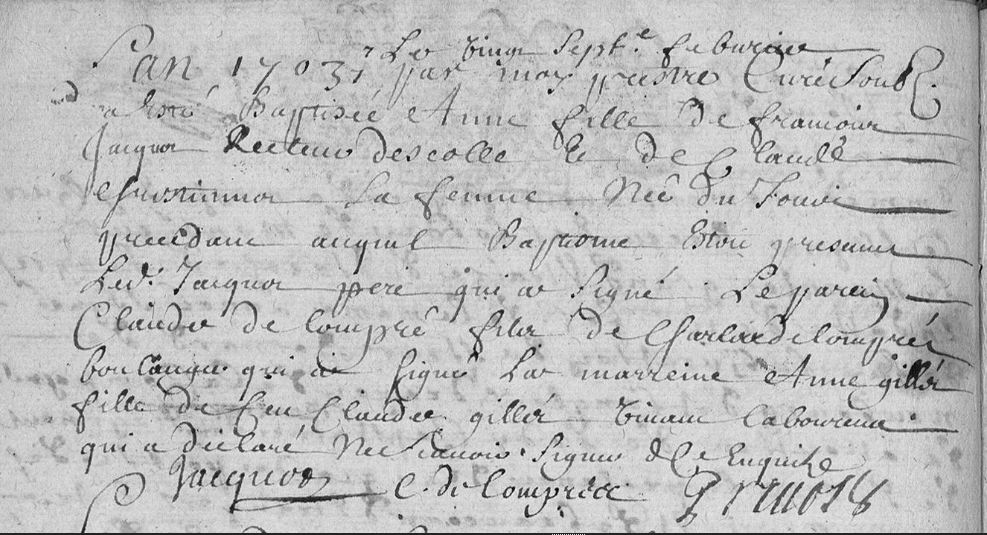 Lan 1703, Le vingt sept.e febvrier
par moy prestre Curé soub
a Esté Baptisée Anne fille de francois
Jacquot Recteur descolle Et de Claude
la femme Née du Jour
precedent auquel Baptsme Estoit present
Led. Jacquot pere qui a signé. Le parein
Claude de lompré fils de Charles de lompré
boulanger qui a signé La marreine Anne gillés
fille de feu Claude gillés vivant laboureur
qui a déclaré Ne scavoir signer de ce Enquise
Jacquot C. de lompree Prevost